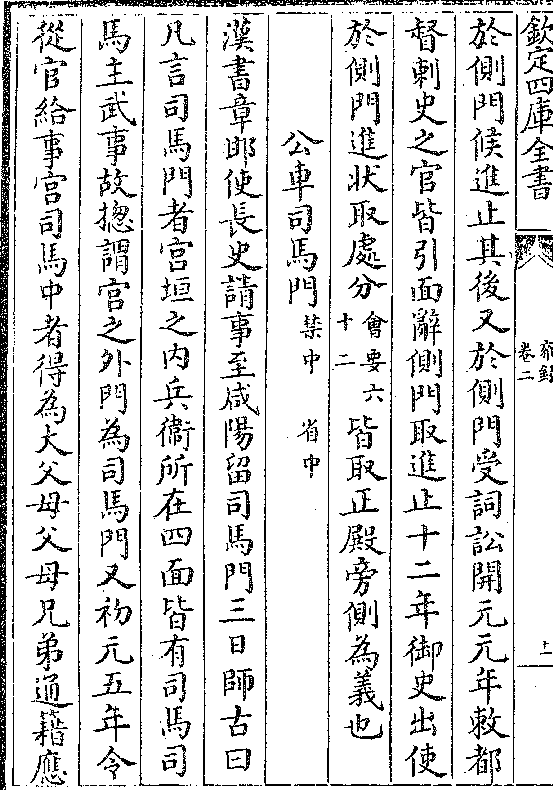 欽定四庫全書
卷二
於側門候進止其後又於側門受詞訟開元元年敕都
督刺史之官皆引面辭側門取進止十二年御史出使
於側門進狀取處分會要六十二皆取正殿旁側為義也
公車司馬門禁中 省中
漢書章邯使長史請事至咸陽留司馬門三日師古曰
凡言司馬門者宮垣之內兵衛所在四面皆有司馬司
馬主武事故揔謂宮之外門為司馬門又初元五年令
從官給事宮司馬中者得為大父母父母兄弟通籍應